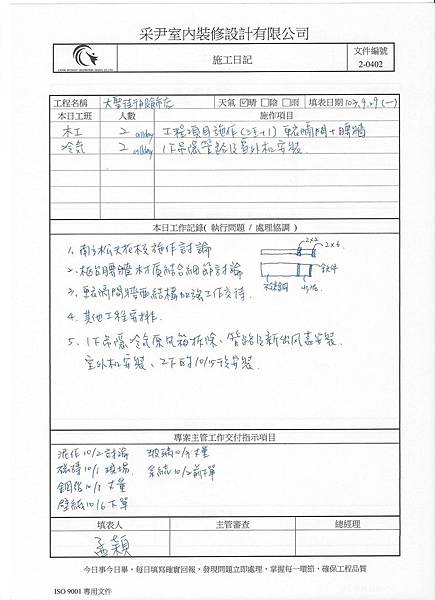 采尹室內裝修設計有限公司
施工日記
文件編號
2-0402
工程名稱 天氣 ☑晴 □陰 □雨 填表日期103.9.29(一)
本日工班 人數 施作項目
木工 2 allday 工程項目施作
冷氣 2 allday 1F吊隱管路及室外機安裝.
本日工作記錄( 執行問題 / 處理協調 )
1. 南方松天花板施作討論
2×2 2×6
2. 櫃台腰牆木質結合細節討論
3. 輕隔間牆面結構加強工作交待.
4. 其他工程安排.
5. 1F吊隱冷氣原風箱拆除、管路及新出風口安裝.
室外機安裝、2F的10/5後安裝.
專案主管工作交付指示項目
泥作10/2討論 玻璃10/5丈量
磁磚10/1現場. 系統10/2前下單
鋁窗10/8丈量
壁紙10/6下單
填表人 主管審查 總經理
孟穎
今日事今日畢，每日填寫確實回報，發現問題立即處理，掌握每一環節，確保工程品質
ISO 9001 專用文件